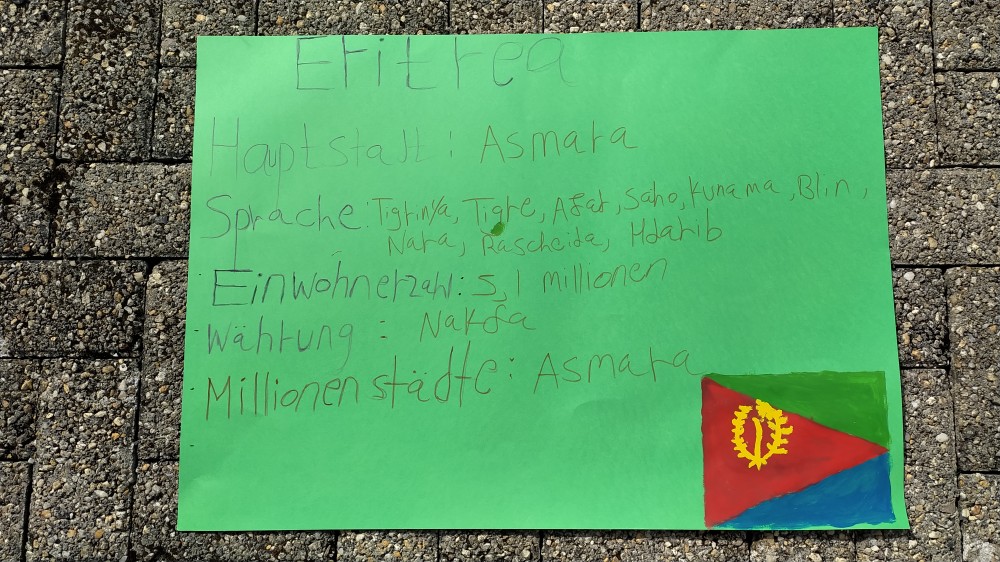 Eritrea
Hauptstatt: Asmara
Sprache: Tigrinya, Tigre, Afar, Saho, Kunama, Blin,
Nara, Rascheida, Hdarib
Einwohnerzahl: 5,1 millionen
Währung: Nakfa
Millionenstädte: Asmara